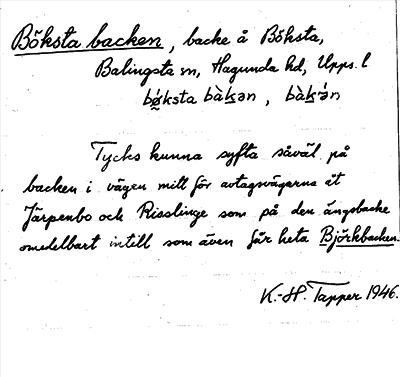 Böksta backen, backe å Böksta,
Balingsta sn, Hagunda hd, Upps. l
bø̀ksta bàkən, bàkə́n
Tycks kunna syfta såväl på
backen i vägen mitt för avtagsvägarna åt
Järpenbo och Risslinge som på den ängsbacke
omedelbart intill som även får heta Björkbacken.
K.-H. Tapper 1946.